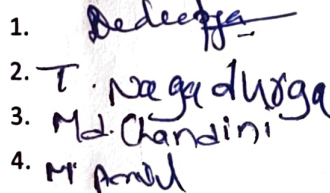 1. Dedeepya
2. T. Naga durga
3. Md. Chandini
4. M.